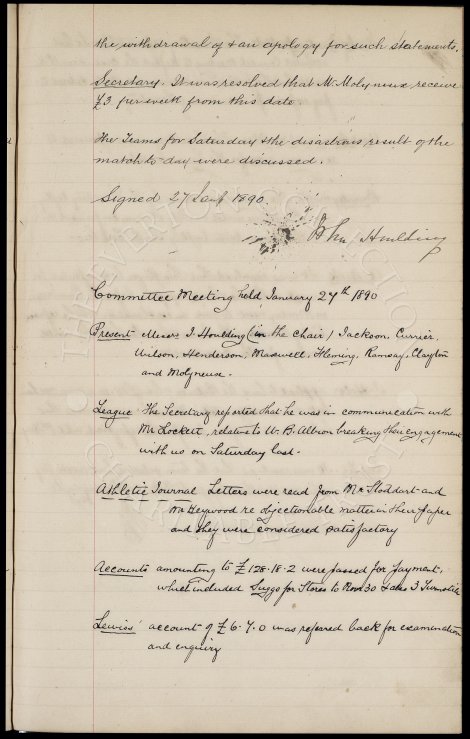 the withdrawal of & an apology for such statements.
Secretary. It was resolved that Mr. Molyneux receive
£3 per week from this date
The Teams for Saturday & the disastrous result of the
match to-day were discussed.
Signed 27 Jany 1890
John Houlding
Committee Meeting held January 27th 1890
Present Messrs J Houlding (in the Chair) Jackson, Currier,
Wilson, Henderson, Maxwell, Fleming, Ramsay, Clayton
and Molyneux.
League The Secretary reported that he was in communication with
Mr Lockett, relative to W. B. Albion breaking their engagement
with us on Saturday last.
Athletic Journal Letters were read from Mr Stoddart and
Mr Heywood re objectionable matter in their paper
and they were considered satisfactory
Accounts amounting to £128-18-2 were passed for payment,
which included for Stores to 30 & 3 Turnstile
Lewiss' account of £6-7-0 was refeared back for examination
and enquiry
THE EVERTON COLLECTION